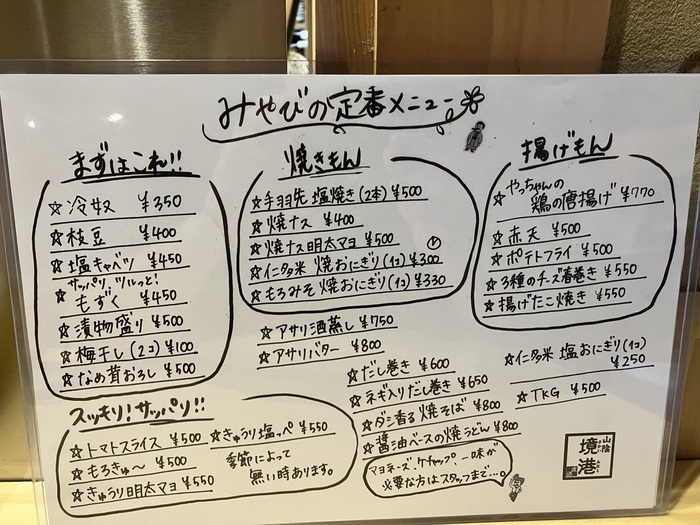 みやびの定番メニュー
まずはこれ!!
☆冷奴 ¥350
☆枝豆 ¥400
☆塩キャベツ ¥450
サッパリ、ツルっと!
☆もずく ¥450
☆漬物盛り ¥500
☆梅干し(2コ) ¥100
☆なめ茸おろし ¥500
スッキリ!サッパリ!!
☆トマトスライス ¥500
☆もろきゅ〜 ¥500
☆きゅうり明太マヨ ¥550
☆きゅうり塩っぺ ¥550
季節によって
無い時あります。
焼きもん
☆手羽先 塩焼き(2本) ¥500
☆焼ナス ¥400
☆焼ナス明太マヨ ¥500
☆仁多米 焼おにぎり(1コ) ¥300
☆もろみそ 焼おにぎり(1コ) ¥330
☆アサリ酒蒸し ¥750
☆アサリバター ¥800
☆だし巻き ¥600
☆ネギ入りだし巻き ¥650
☆ダシ香る焼そば ¥800
☆醤油ベースの焼うどん ¥800
マヨネーズ、ケチャップ、一味が
必要な方はスタッフまで…。
揚げもん
☆やっちゃんの
鶏の唐揚げ ¥770
☆赤天 ¥500
☆ポテトフライ ¥500
☆3種のチーズ春巻き ¥550
☆揚げたこ焼き ¥550
☆仁多米 塩おにぎり(1コ)
¥250
☆TKG ¥500
山陰
境港